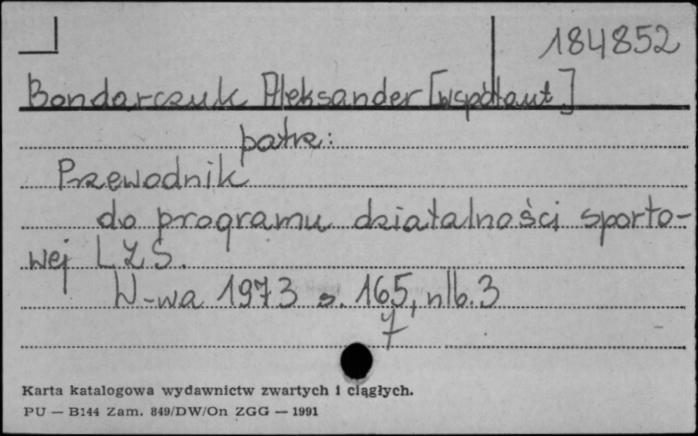 184852
Bondarczuk Aleksander [współaut]
patrz:
Przewodnik
do programu działalności sporto-
wej LZS.
W-wa 1973 s. 165, nlb. 3
7
Karta katalogowa wydawnictw zwartych i ciągłych.
PU — B144 Zam. 849/DW/On ZGG — 1991